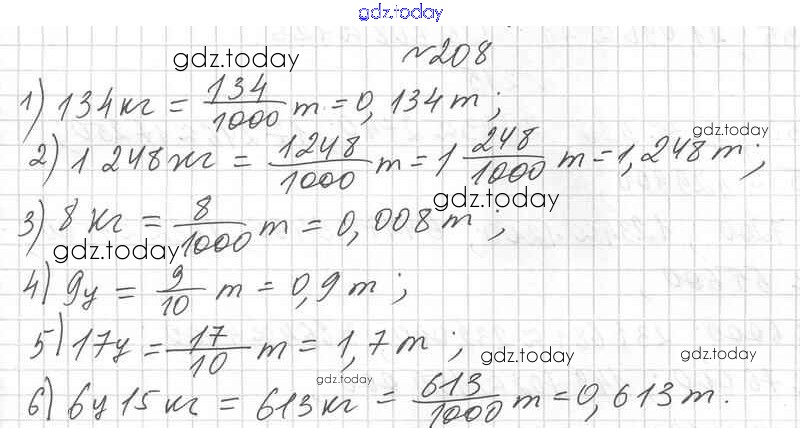 gdz.today
№208
gdz.today
1) 134 кг = 134/1000 т = 0,134 т;
gdz.today
2) 1 248 кг = 1248/1000 т = 1 248/1000 т = 1,248 т;
gdz.today
3) 8 кг = 8/1000 т = 0,008 т;
gdz.today
4) 9ц = 9/10 т = 0,9 т;
5) 17ц = 17/10 т = 1,7 т;
gdz.today gdz.today
gdz.today
6) 6ц 15 кг = 613 кг = 613/1000 т = 0,613 т.